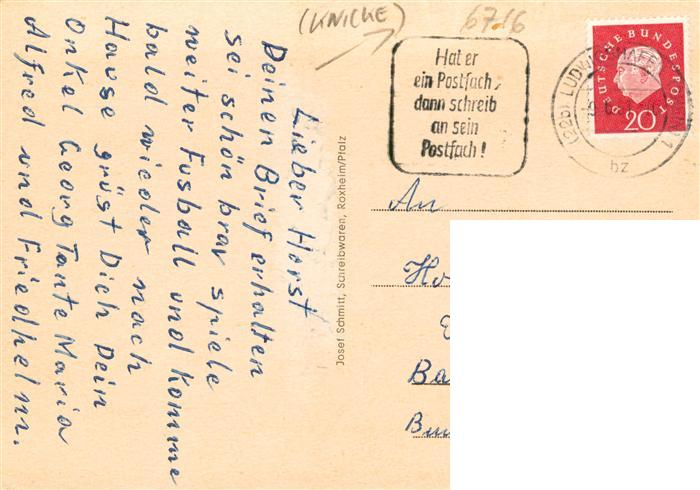 Lieber Horst
Deinen Brief erhalten
sei schön brav spiele
weiter Fusball und komme
bald wieder nach
Hause grüst Dich Dein
Onkel Georg Tante Maria
Alfred und Friedhelm.
Josef Schmitt, Schreibwaren, Roxheim/Pfalz
(KNICKE)
6716
Hat er
ein Postfach,
dann schreib
an sein
Postfach!
DEUTSCHE BUNDESPOST
20
(22b) LUDWIGSHAFEN
bz
An
Ho
Ba